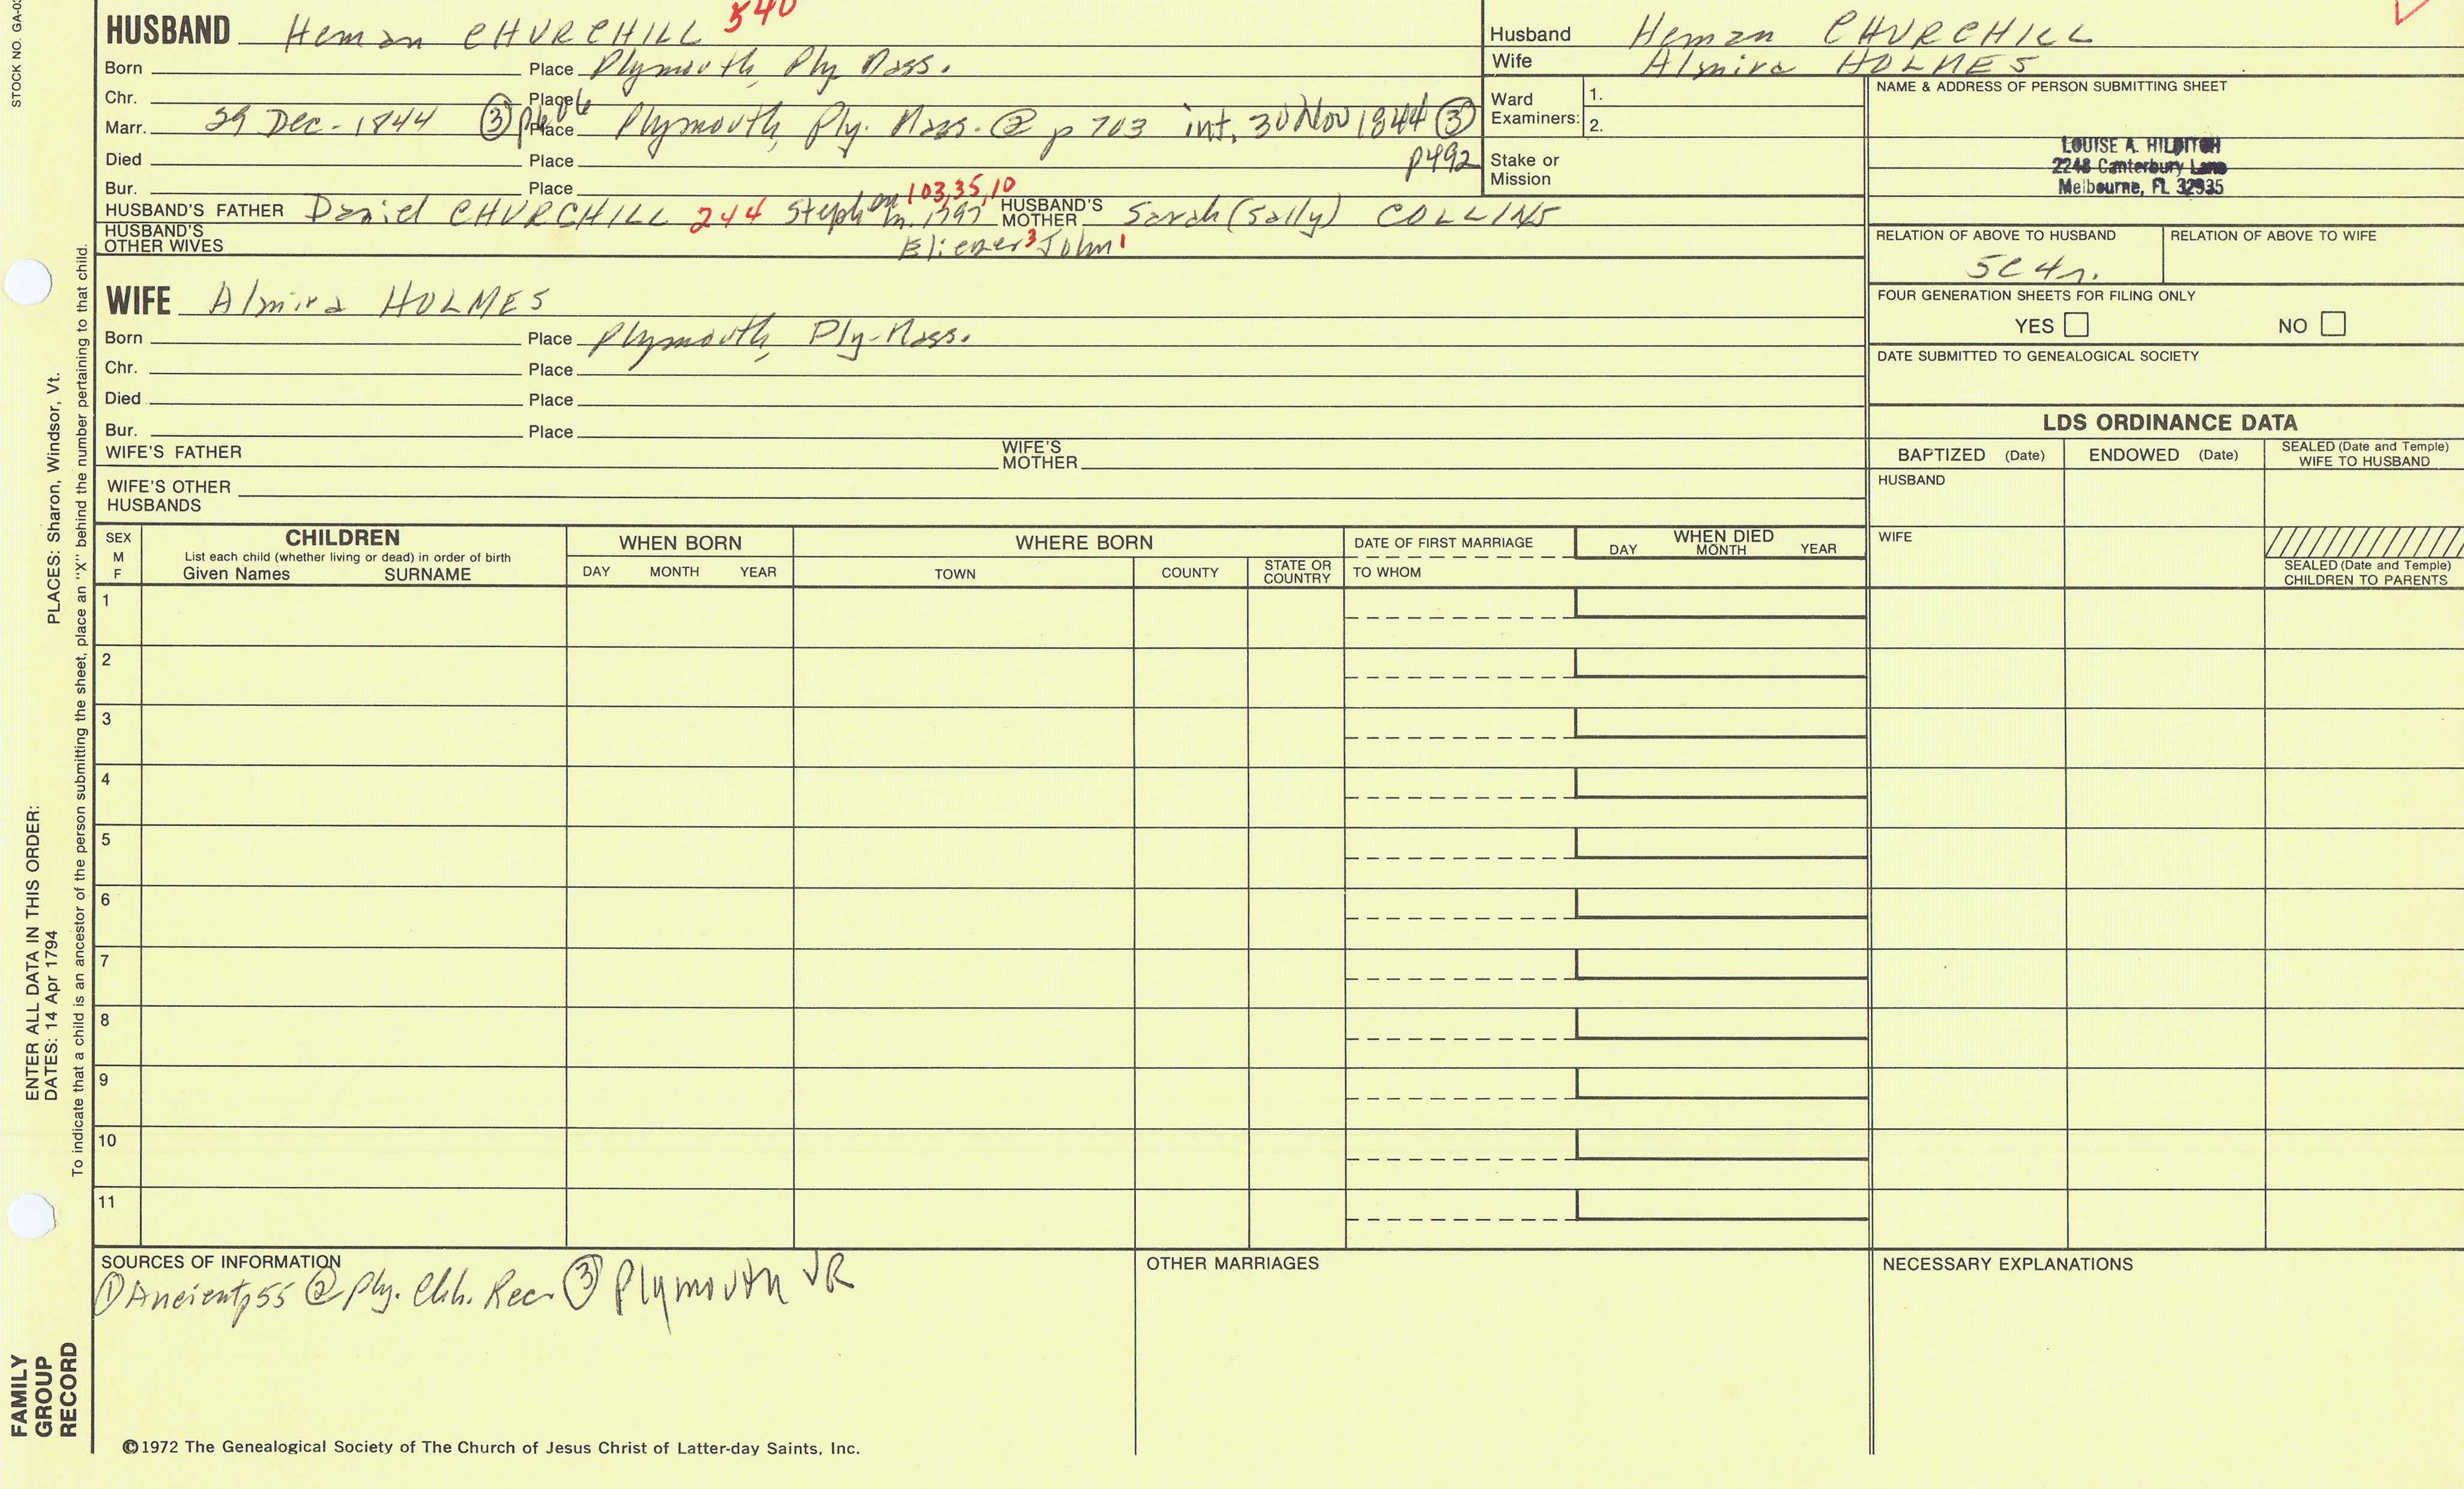 STOCK NO. GA-0
HUSBAND Heman CHURCHILL 540
Born Place Plymouth, Ply Mass.
Chr. Place
Marr. 29 Dec - 1844 ③ Place Plymouth, Ply. Mass. ② p 703 int. 30 Nov 1844 ③
p492
Died Place
Bur. Place
HUSBAND'S FATHER Daniel CHURCHILL 244 Stephen 103,35,10 m. 1797 HUSBAND'S MOTHER Sarah (Sally) COLLINS
HUSBAND'S OTHER WIVES Eliezer³ John¹
Husband Heman CHURCHILL
Wife Almira HOLMES
Ward Examiners: 1.
2.
Stake or Mission
NAME & ADDRESS OF PERSON SUBMITTING SHEET
LOUISE A. HILDITCH
2248 Canterbury Lane
Melbourne, FL 32935
RELATION OF ABOVE TO HUSBAND RELATION OF ABOVE TO WIFE
5C 4r.
FOUR GENERATION SHEETS FOR FILING ONLY
YES NO
DATE SUBMITTED TO GENEALOGICAL SOCIETY
WIFE Almira HOLMES
Born Place Plymouth, Ply-Mass.
Chr. Place
Died Place
Bur. Place
WIFE'S FATHER WIFE'S MOTHER
WIFE'S OTHER HUSBANDS
LDS ORDINANCE DATA
BAPTIZED (Date) ENDOWED (Date) SEALED (Date and Temple) WIFE TO HUSBAND
HUSBAND
WIFE
SEALED (Date and Temple) CHILDREN TO PARENTS
SEX M F
CHILDREN
List each child (whether living or dead) in order of birth
Given Names SURNAME
WHEN BORN
DAY MONTH YEAR
WHERE BORN
TOWN COUNTY STATE OR COUNTRY
DATE OF FIRST MARRIAGE
TO WHOM
WHEN DIED
DAY MONTH YEAR
1
2
3
4
5
6
7
8
9
10
11
SOURCES OF INFORMATION
① Ancient p55 ② Ply. Chh. Rec. ③ Plymouth VR
OTHER MARRIAGES
NECESSARY EXPLANATIONS
©1972 The Genealogical Society of The Church of Jesus Christ of Latter-day Saints, Inc.
FAMILY GROUP RECORD
ENTER ALL DATA IN THIS ORDER:
DATES: 14 Apr 1794
PLACES: Sharon, Windsor, Vt.
To indicate that a child is an ancestor of the person submitting the sheet, place an "X" behind the number pertaining to that child.